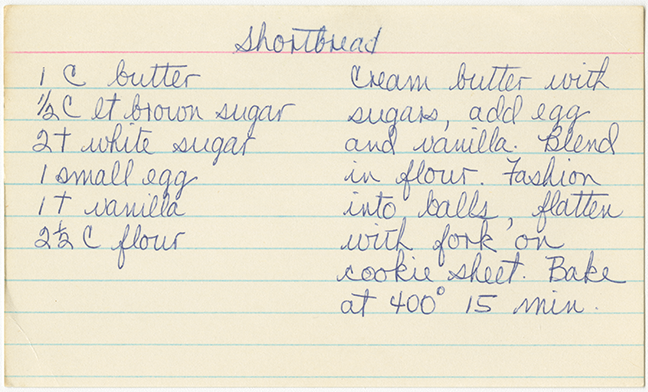 Shortbread
1 C butter
½ C lt brown sugar
2 t white sugar
1 small egg
1 t vanilla
2½ C flour
Cream butter with
sugars, add egg
and vanilla. Blend
in flour. Fashion
into balls, flatten
with fork on
cookie sheet. Bake
at 400° 15 min.